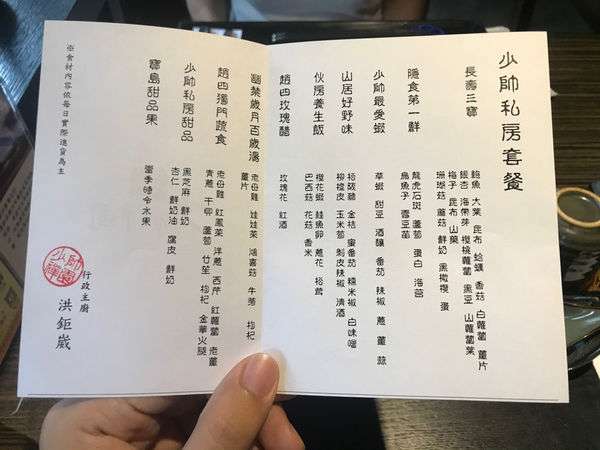 少帥私房套餐
長壽三寶
鮑魚 大葉 昆布 蛤蠣 香菇 白蘿蔔 薑片
銀杏 海帶芽 櫻桃蘿蔔 黑豆 山蘿蔔葉
梅子 昆布 山藥
珊瑚菇 蘑菇 鮮奶 黑橄欖 蛋
隱食第一鮮
龍虎石斑 蘆筍 蛋白 海苔
烏魚子 雪豆莢
少帥最愛蝦
草蝦 甜豆 酒釀 番茄 辣椒 蔥 薑 蒜
山居好野味
松阪豬 金桔 蜜番茄 糯米椒 白味噌
柳橙皮 玉米筍 剝皮辣椒 清酒
伙房養生飯
櫻花蝦 鮭魚卵 蔥花 松茸
巴西菇 花菇 香米
趙四玫瑰醋
玫瑰花 紅酒
幽禁歲月百歲湯
老母雞 娃娃菜 鴻喜菇 牛蒡 枸杞
薑片
趙四獨門蔬食
老母雞 紅鳳菜 洋蔥 西芹 紅蘿蔔 老薑
青蔥 干貝 蘆筍 竹笙 枸杞 金華火腿
少帥私房甜品
黑芝麻 鮮奶
杏仁 鮮奶油 腐皮 鮮奶
寶島甜品果
當季時令水果
※食材內容依每日實際進貨為主
少帥禪園
行政主廚 洪鉅崴